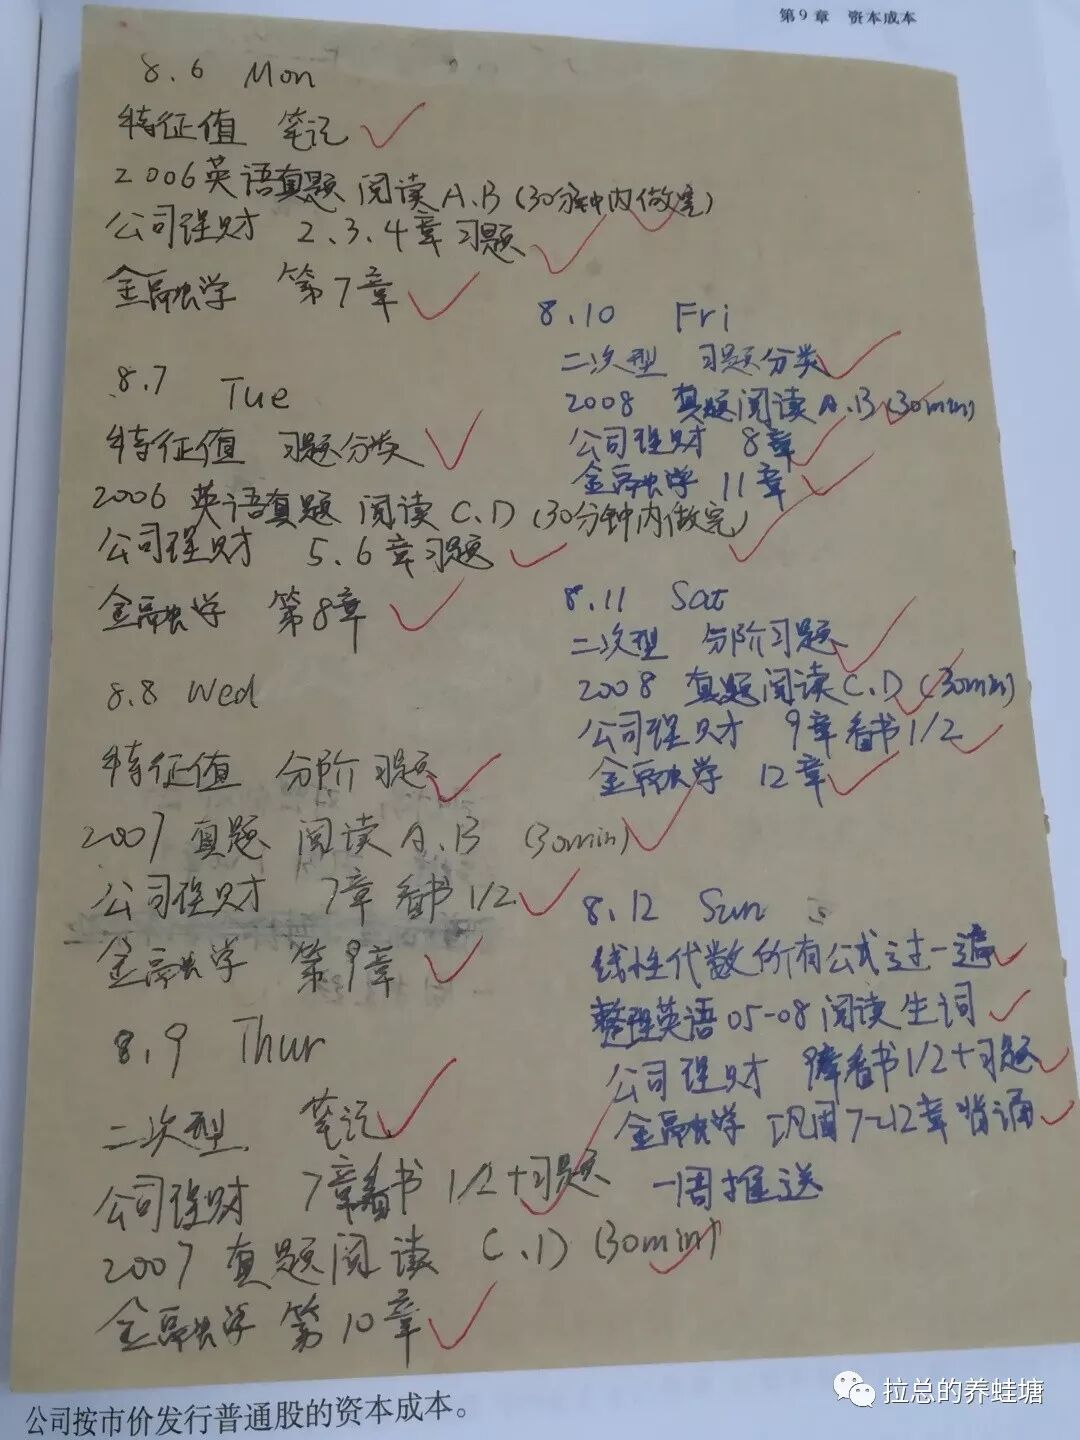 第9章 资本成本
8.6 Mon
特征值 笔记
2006英语真题 阅读A.B(30分钟内做完)
公司理财 2.3.4章习题
金融学 第7章
8.7 Tue
特征值 习题分类
2006 英语真题 阅读C.D(30分钟内做完)
公司理财 5.6章习题
金融学 第8章
8.8 Wed
特征值 分阶习题
2007 真题 阅读A.B (30min)
公司理财 7章 看书1/2
金融学 第9章
8.9 Thur
二次型 笔记
公司理财 7章看书 1/2+习题
2007 真题阅读 C.D (30min)
金融学 第10章
8.10 Fri
二次型 习题分类
2008 真题阅读A.B(30min)
公司理财 8章
金融学 11章
8.11 Sat
二次型 分阶习题
2008 真题阅读C.D (30min)
公司理财 9章看书1/2
金融学 12章
8.12 Sun
线性代数所有公式过一遍
整理英语05-08阅读生词
公司理财 9章看书1/2+习题
金融学 巩固7-12章背诵
一周推送
公司按市价发行普通股的资本成本。
拉总的养蛙塘